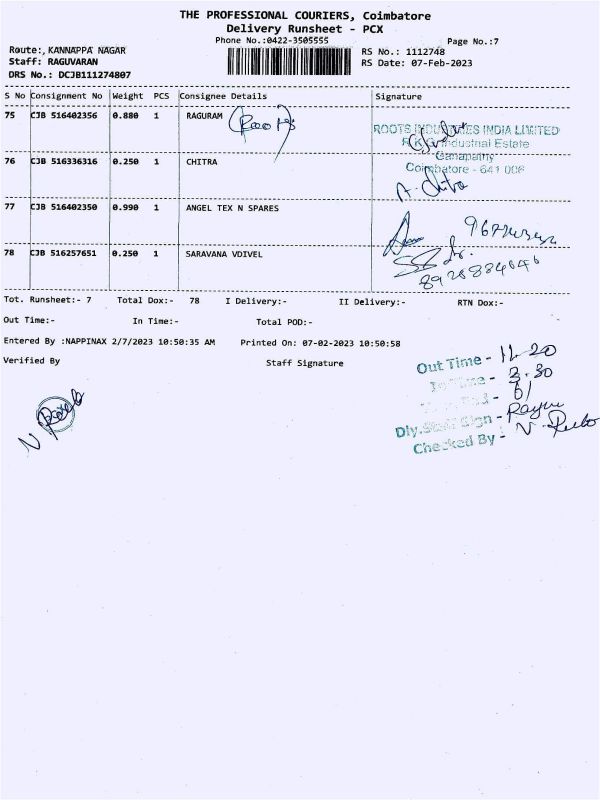 THE PROFESSIONAL COURIERS, Coimbatore
Delivery Runsheet - PCX
Phone No.:0422-3505555
Page No.:7
Route:, KANNAPPA NAGAR
RS No.: 1112748
Staff: RAGUVARAN
RS Date: 07-Feb-2023
DRS No.: DCJB111274807
S No Consignment No Weight PCS Consignee Details Signature
75 CJB 516402356 0.880 1 RAGURAM
(Roots)
ROOTS INDUSTRIES INDIA LIMITED
R.K.G. Industrial Estate
Ganapathy
Coimbatore - 641 006
76 CJB 516336316 0.250 1 CHITRA
A. Chitra
77 CJB 516402350 0.990 1 ANGEL TEX N SPARES
78 CJB 516257651 0.250 1 SARAVANA VDIVEL
8928884646
Tot. Runsheet:- 7 Total Dox:- 78 I Delivery:- II Delivery:- RTN Dox:-
Out Time:- In Time:- Total POD:-
Entered By :NAPPINAX 2/7/2023 10:50:35 AM Printed On: 07-02-2023 10:50:58
Verified By Staff Signature
Out Time - 11.20
In Time - 3.30
61
Dly.Staff Sign -
Checked By - N.